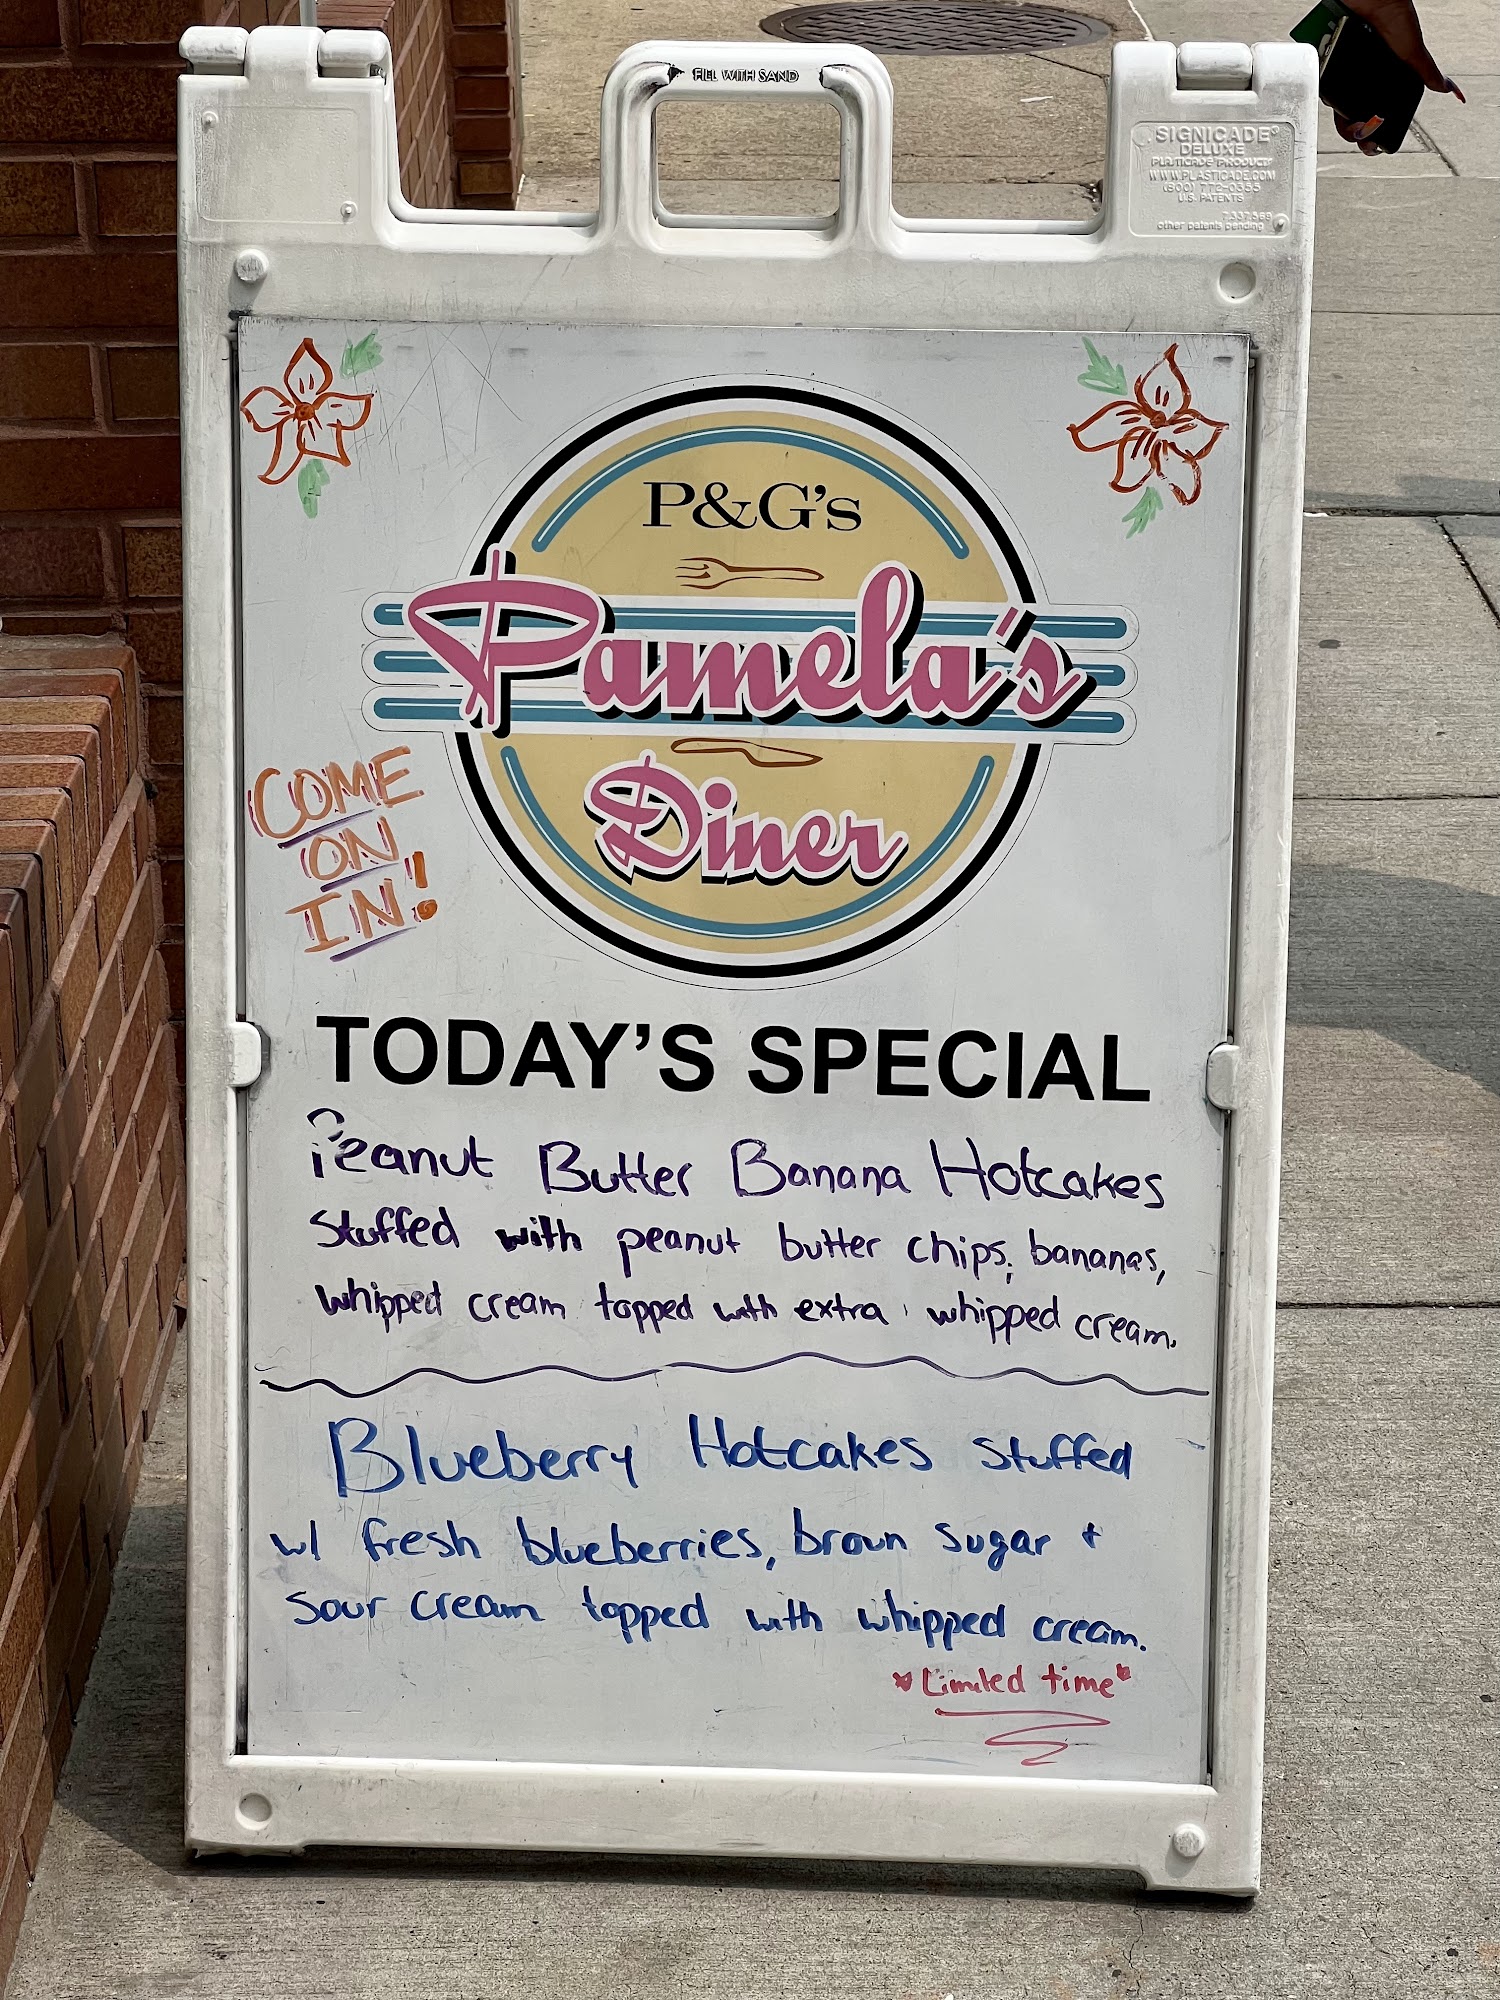 FILL WITH SAND
SIGNICADE®
DELUXE
PLASTICADE PRODUCTS
WWW.PLASTICADE.COM
(800) 772-0355
U.S. PATENTS
7,337,569
other patents pending
P&G's
Pamela's
Diner
COME
ON
IN!
TODAY'S SPECIAL
Peanut Butter Banana Hotcakes
Stuffed with peanut butter chips, bananas,
whipped cream topped with extra whipped cream.
Blueberry Hotcakes stuffed
w/ fresh blueberries, brown sugar +
sour cream topped with whipped cream.
*Limited time*